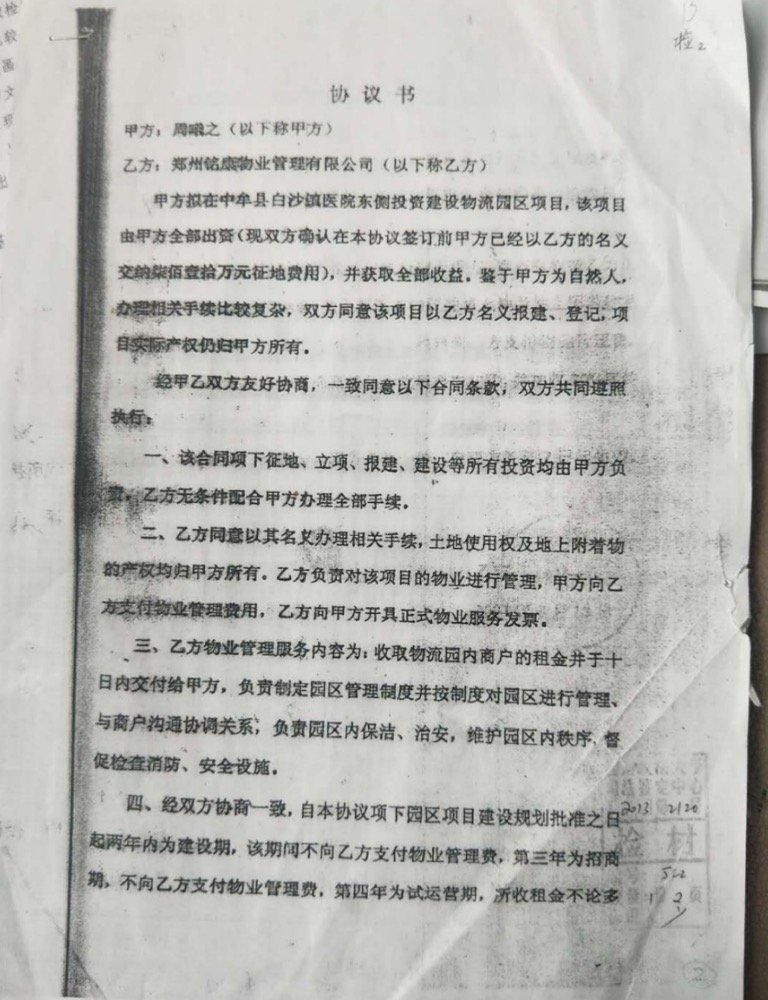 检
较
画
文
现
出
检2
协议书
甲方：周曦之（以下称甲方）
乙方：郑州铭康物业管理有限公司（以下称乙方）
甲方拟在中牟县白沙镇医院东侧投资建设物流园区项目，该项目
由甲方全部出资（现双方确认在本协议签订前甲方已经以乙方的名义
交纳柒佰壹拾万元征地费用），并获取全部收益。鉴于甲方为自然人，
办理相关手续比较复杂，双方同意该项目以乙方名义报建、登记，项
目实际产权仍归甲方所有。
经甲乙双方友好协商，一致同意以下合同条款，双方共同遵照
执行：
一、该合同项下征地、立项、报建、建设等所有投资均由甲方负
责，乙方无条件配合甲方办理全部手续。
二、乙方同意以其名义办理相关手续，土地使用权及地上附着物
的产权均归甲方所有。乙方负责对该项目的物业进行管理，甲方向乙
方支付物业管理费用，乙方向甲方开具正式物业服务发票。
三、乙方物业管理服务内容为：收取物流园内商户的租金并于十
日内交付给甲方，负责制定园区管理制度并按制度对园区进行管理、
与商户沟通协调关系，负责园区内保洁、治安，维护园区内秩序、督
促检查消防、安全设施。
四、经双方协商一致，自本协议项下园区项目建设规划批准之日
起两年内为建设期，该期间不向乙方支付物业管理费，第三年为招商
期，不向乙方支付物业管理费，第四年为试运营期，所收租金不论多
中心
2013 2120
检材
页
2